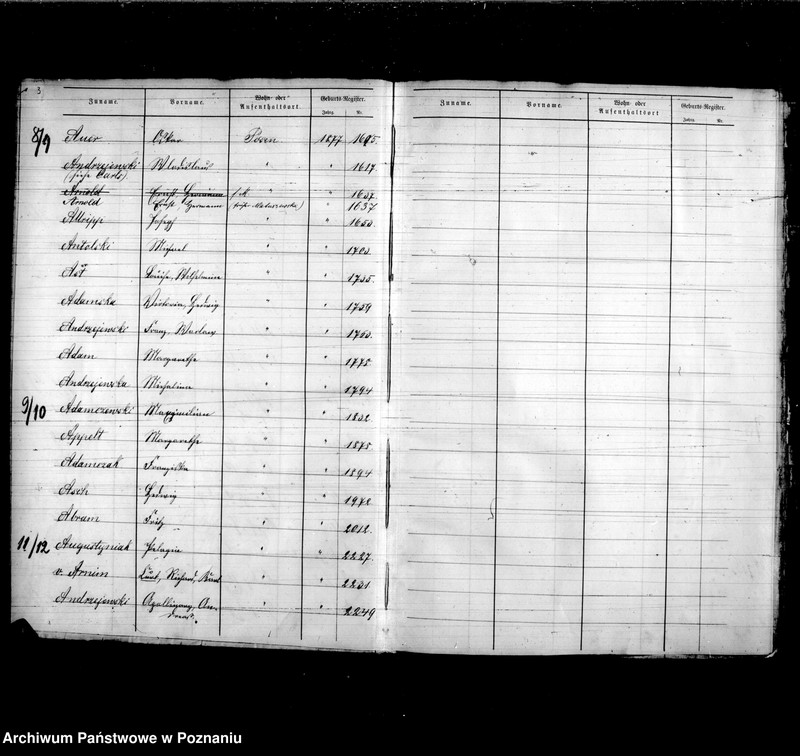 3
Zuname. Vorname. Wohn- oder Aufenthaltsort. Geburts-Register. Jahrg. Nr.
8/9 Auer Oskar Posen 1877 1605.
Andrzejewski Wladislaus " " 1617
(siehe Curts)
Arnold Ernst Hermann " 1637
Arnold Ernst Hermann " 1637
Joseph " " 1653
Antolski Michael " " 1703
Ast Louise, Wilhelmine " " 1735
Adamska Victoria, Hedwig " " 1739
Andrzejewski Franz, " " 1763
Adam Margarethe " " 1775
Andrzejewska Michalina " " 1794
9/10 Adamczewski Maximiliane " " 1832
Appelt Margarethe " " 1875
Adamczak Franziska " " 1894
Asch Hedwig " " 1972
Abram Fritz " " 2012
11/12 Augustyniak Pelagia " " 2227
v. Arnim Curt, Richard, " " 2231
Andrzejewski An- " " 2249
dreas.
Zuname. Vorname. Wohn- oder Aufenthaltsort Geburts-Register. Jahrg. Nr.
Archiwum Państwowe w Poznaniu